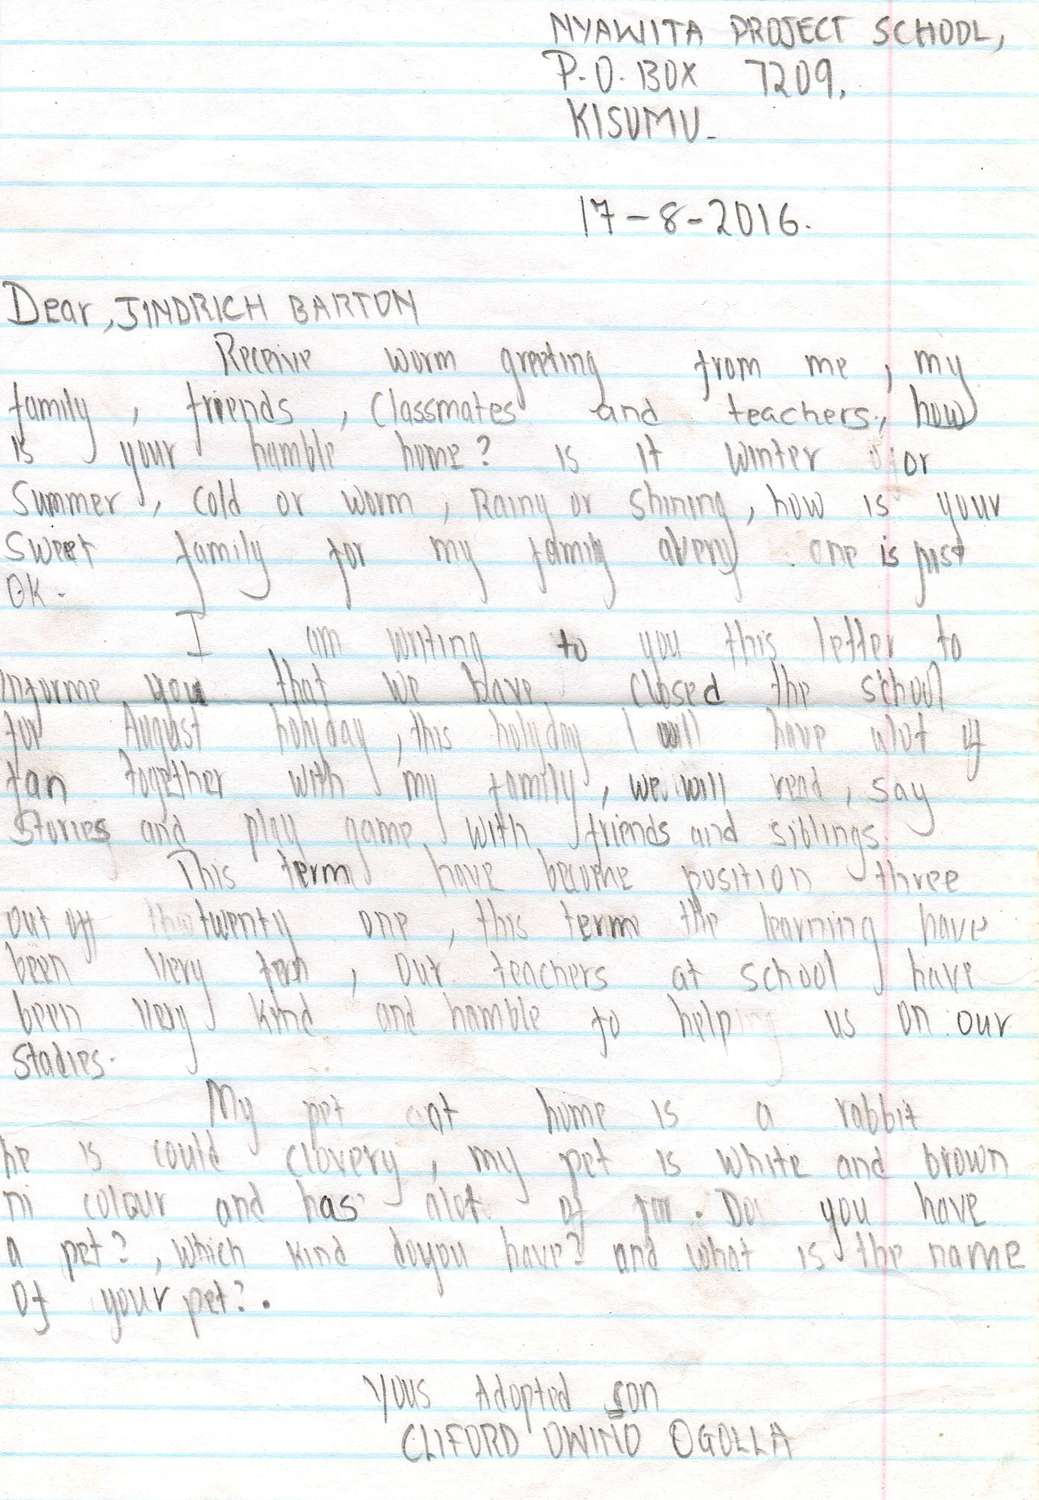 NYAWITA PROJECT SCHOOL,
P.O. BOX 7209,
KISUMU.
17-8-2016.
Dear, JINDRICH BARTON
Receive worm greeting from me, my
family, friends, classmates and teachers, how
is your hamble home? is it winter or
Summer, cold or worm, Rainy or shining, how is your
Sweet family for my family avery one is just
OK.
I am writing to you this letter to
informe you that we have closed the school
for August holyday, this holyday I will have alot of
fan together with my family, we will read, say
Stories and play game with friends and siblings.
This term have become position three
out off twenty one, this term the learning have
been very fan, our teachers at school have
been very kind and hamble to help us on our
stadies.
My pet at home is a rabbit
he is could clovery, my pet is white and brown
ni colour and has alot of . Do you have
a pet?, which kind doyou have? and what is the name
Of your pet?.
Yous Adopted son
CLIFORD OWINO OGOLLA